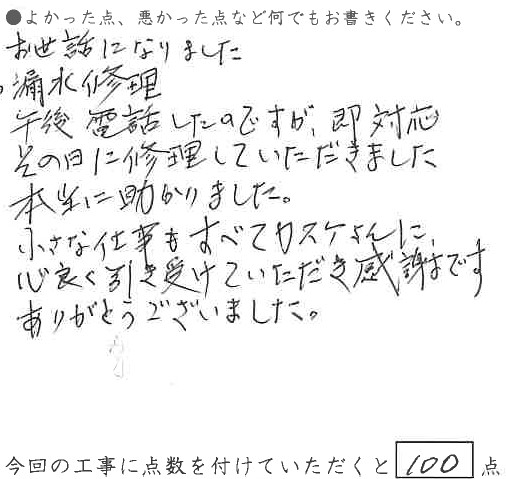 ●よかった点、悪かった点など何でもお書きください。
お世話になりました
漏水修理
午後 電話したのですが、即対応
その日に修理していただきました
本当に助かりました。
小さな仕事もすべてカスケさんに、
心良く引き受けていただき感謝です
ありがとうございました。
今回の工事に点数を付けていただくと 100 点